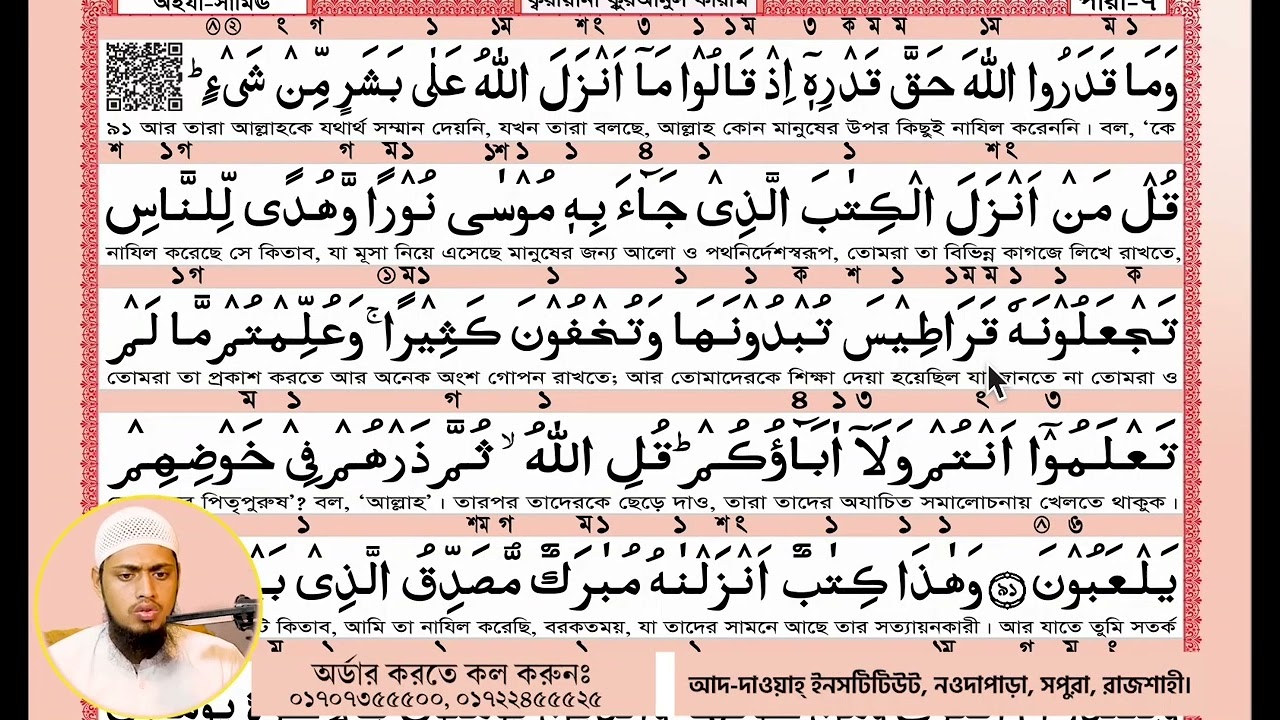 অইযা-সামিউ ক্বুরআনুল কারীম পারা-৭
৮ ২ ং গ ১ ১ম শ ং ৩ ১ ১ম ৩ ক ম ম ১ম ম ১
وَمَا قَدَرُوا اللّٰهَ حَقَّ قَدْرِهٖٓ اِذْ قَالُوْا مَآ اَنْزَلَ اللّٰهُ عَلٰى بَشَرٍ مِّنْ شَىْءٍ ؕ
৯১ আর তারা আল্লাহকে যথার্থ সম্মান দেয়নি, যখন তারা বলছে, আল্লাহ কোন মানুষের উপর কিছুই নাযিল করেননি। বল, ‘কে
শ ১গ গ ম১ ১শ ১ ১ ৪ ১ ১ শ ং
قُلْ مَنْ اَنْزَلَ الْكِتٰبَ الَّذِىْ جَآءَ بِهٖ مُوْسٰى نُوْرًا وَّهُدًى لِّلنَّاسِ
নাযিল করেছে সে কিতাব, যা মূসা নিয়ে এসেছে মানুষের জন্য আলো ও পথনির্দেশস্বরূপ, তোমরা তা বিভিন্ন কাগজে লিখে রাখতে,
১গ ১ ম১ ১ ১ ১ ক শ ১ ১ম ম ১ ১ ক
تَجْعَلُوْنَهٗ قَرَاطِيْسَ تُبْدُوْنَهَا وَتُخْفُوْنَ كَثِيْرًا ۚ وَعُلِّمْتُمْ مَّا لَمْ
তোমরা তা প্রকাশ করতে আর অনেক অংশ গোপন রাখতে; আর তোমাদেরকে শিক্ষা দেয়া হয়েছিল যা জানতে না তোমরা ও
ম ১ গ ১ ৪ ১৩ ং ৩
تَعْلَمُوْٓا اَنْتُمْ وَلَآ اٰبَآؤُكُمْ ؕ قُلِ اللّٰهُ ۙ ثُمَّ ذَرْهُمْ فِىْ خَوْضِهِمْ
পিতৃপুরুষ’? বল, ‘আল্লাহ’। তারপর তাদেরকে ছেড়ে দাও, তারা তাদের অযাচিত সমালোচনায় খেলতে থাকুক।
১ শম গ ম১ ১ শ ং ১ ১ ১ ৮ ৬
يَلْعَبُوْنَ ৯১ وَهٰذَا كِتٰبٌ اَنْزَلْنٰهُ مُبٰرَكٌ مُّصَدِّقُ الَّذِىْ
কিতাব, আমি তা নাযিল করেছি, বরকতময়, যা তাদের সামনে আছে তার সত্যায়নকারী। আর যাতে তুমি সতর্ক
অর্ডার করতে কল করুনঃ
০১৭০৭৩৫৫৫০০, ০১৭২২৪৫৫৫২৫
আদ-দাওয়াহ্ ইনসটিটিউট, নওদাপাড়া, সপুরা, রাজশাহী।